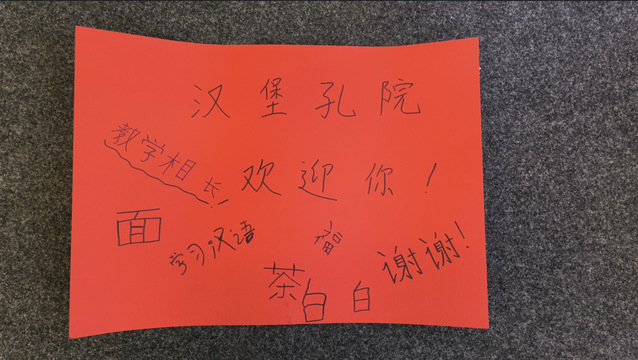 汉堡孔院
教学相长
欢迎你!
面
学习汉语
福
谢谢!
茶
白
白